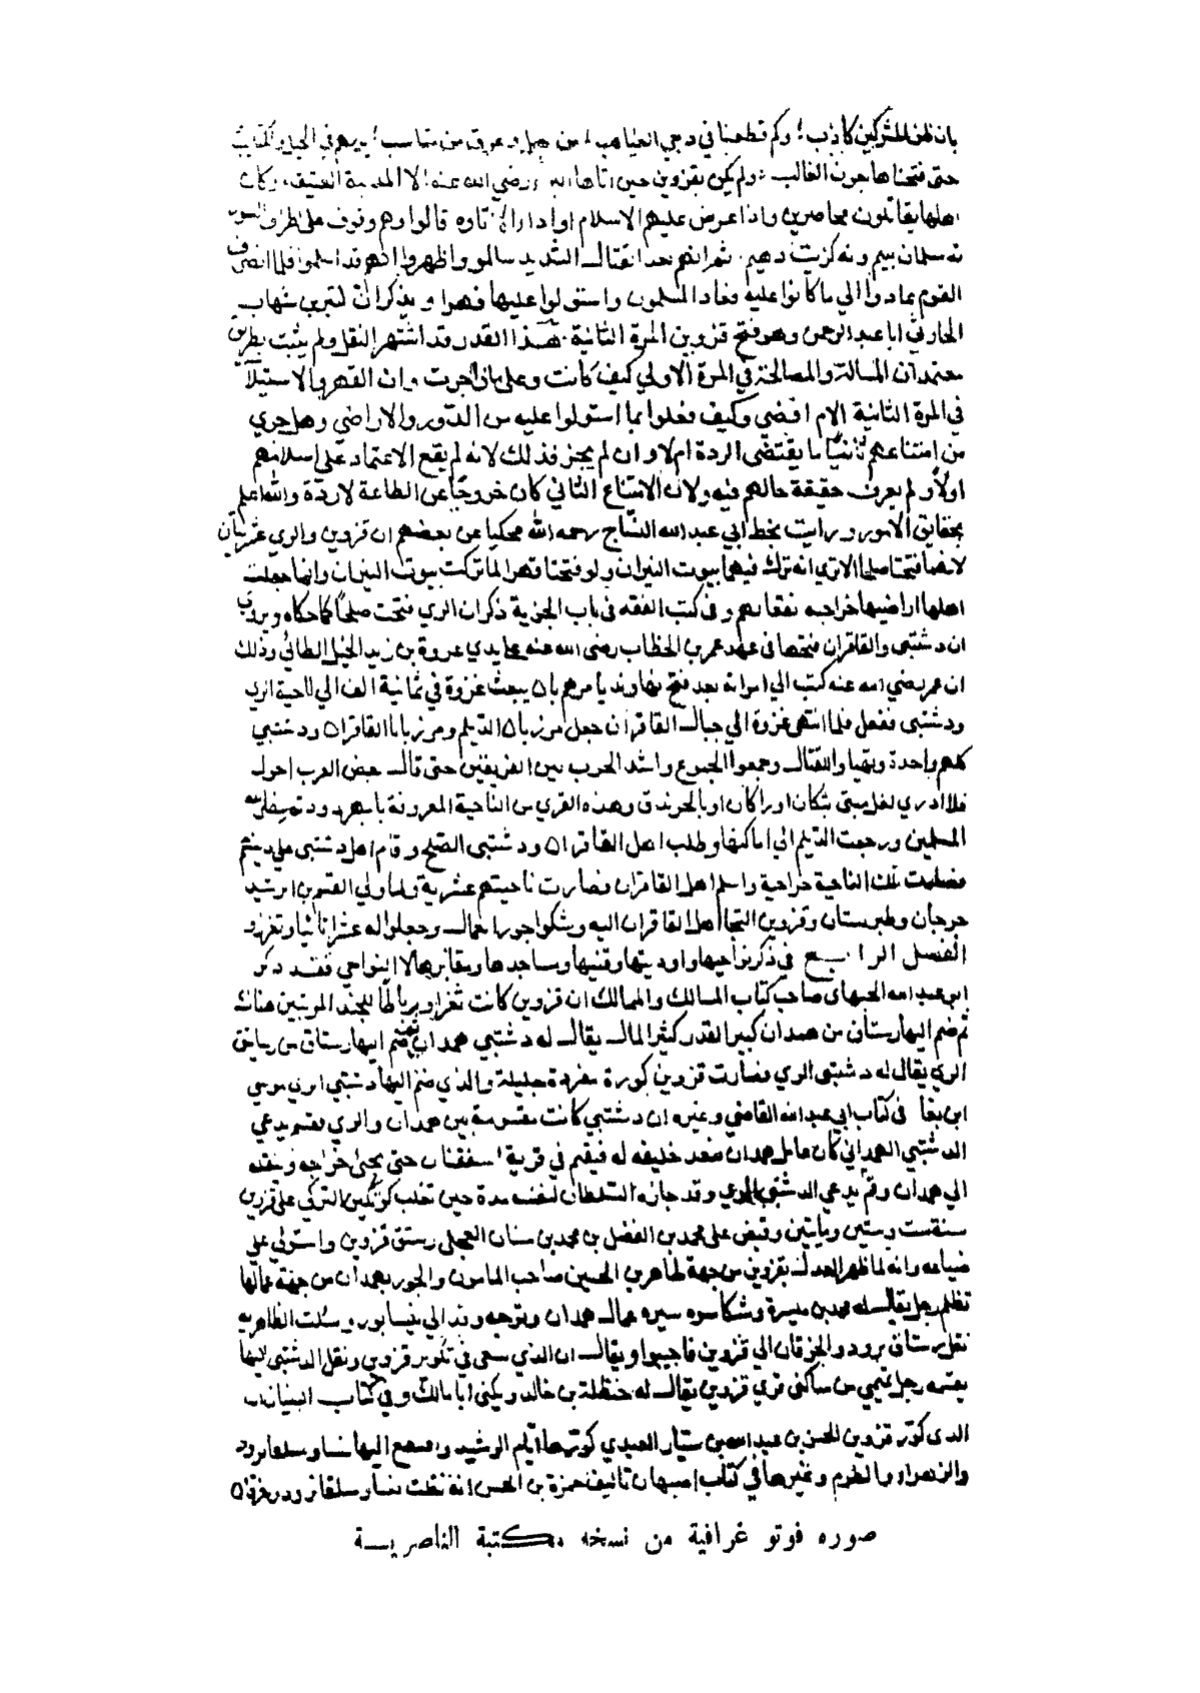 بان ظن المشركين كاذب؛ وكم قطعنا في دجي الغياهب من جبل وعر ومن سباسب
حتي فتحناها بعون الغالب ولم يكن بقزوين حين اتاها البراء رضي الله عنه الا المدينة العتيقة وكان
اهلها يقاتلون محاصرين واذا عرض عليهم الاسلام او اداء تاره قالوا وهم وقوف علي طرف السور
نه سلمان بيم ونه كزيت دهيم ثم انهم بعد القتال الشديد سالموا واظهروا انهم قد اسلموا فلما انصرف
القوم عادوا الي ما كانوا عليه فعاد المسلمون واستولوا عليها قهرا ويذكر ان كثير بن شهاب
الحارثي ابا عبد الرحمن وهو فتح قزوين المرة الثانية هذا القدر قد اشتهر النقل ولم يثبت بطريق
معتمد ان المسالة والمصالحة في المرة الاولي كيف كانت وعلي ماذا جرت وان القهر والاستيلآ
في المرة الثانية الام افضي وكيف فعلوا بما استولوا عليه من الدور والاراضي وهل جري
من امتناعهم ثانيا ما يقتضي الردة ام لا وان لم يجز فذلك لانه لم يقع الاعتماد علي اسلامهم
اولا ولم يعرف حقيقة حالهم فيه ولان الامتناع الثاني كان خروجا عن الطاعة لا ردة والله اعلم
بحقايق الامور ورايت بخط ابي عبد الله النساج رحمه الله محكيا عن بعضهم ان قزوين والري عشريتان
لانهما فتحتا صلحا الا تري انه ترك فيهما بيوت النيران ولو فتحتا قهرا لما تركت بيوت النيران وانما جعلت
اهلها اراضيها خراجيه وفي كتب الفقه في باب الجزية ذكر ان الري فتحت صلحا كما حكاه ويروي
ان دشتبي والقاقزان فتحها في عهد عمر بن الخطاب رضي الله عنه علي يدي عروة بن زيد الخيل الطائي وذلك
ان عمر رضي الله عنه كتب الي امرائه بعد فتح نهاوند يامرهم بان يبعث عزوة في ثمانية الف الي ناحية الري
ودشتبي ففعل فلما انتهي عزوة الي جبال القاقزان جعل مرزبان الديلم ومرزبان القاقزان ودشتبي
كلهم واحدة وتهياوا للقتال وجمعوا الجموع واشتد الحرب بين الفريقين حتي قال بعض العرب احول
فلا ادري لعل مبيتي بنكان او راكان او بالجوندق وهذه القري من الناحية المعروفة
المسلمين ورجعت الديلم الي اماكنها وطلب اهل القاقزان ودشتبي الصلح وقام اهل دشتبي علي دينهم
فصارت تلك الناحية خراجية واسلم اهل القاقزان فصارت ناحيتهم عشرية ولما ولي القسم بن الرشيد
جرجان وطبرستان وقزوين التجا اهل القاقزان اليه وشكوا جور العمال وجعلوا له عشرا ثانيا وتعززوا
الفصل الرابع في ذكر نواحيها واوديتها وقنيها ومساجدها ومقابرها اما النواحي فقد ذكر
ابو عبد الله الجيهاني صاحب كتاب المسالك والممالك ان قزوين كانت ثغرا ورباطا للجند المرتبين هناك
ثم ضم اليها رستاق من همدان كبير القدر كثير المال يقال له دشتبي همدان ثم ضم اليها رستاق من رساتيق
الري يقال له دشتبي الري فصارت قزوين كورة مفردة جليلة والذي ضم اليها دشتبي الري موسي
ابن بغا في كتاب ابي عبد الله القاضي وغيره ان دشتبي كانت مقسومة بين همدان والري فقسم يدعي
الدشتبي الهمداني كان عامل همدان ينفذ خليفه له فيقيم في قرية اسفقنان حتي يجبي خراجه وينقله
الي همدان وقسم يدعي الدشتبي الرازي وقد حازه السلطان لنفسه مدة حين تغلب كوتكين التركي علي قزوين
سنة ست وستين ومايتين وقبض علي محمد بن الفضل بن محمد بن سنان العجلي رستق قزوين واستولي علي
ضياعه وانه لما ظهر العدل بقزوين من جهة طاهر بن الحسين صاحب المامون والجور بهمدان من جهة عمالها
تظلم رجل يقال له محمد بن ميسرة وشكا سوء سيره عمال همدان وتوجه وفد الي نيسابور وسئلت الطاهريه
نقل رستاق برود والخرقان الي قزوين فاجيبوا ويقال ان الذي سعي في تكوير قزوين ونقل الدشتبي اليها
بعشره رجل تميمي من ساكني قري قزوين يقال له حنظلة بن خالد ويكني ابا مالك وفي كتاب البنيان
الذي كور قزوين الحسن بن عبد الله بن سيار العبدي كورها ايام الرشيد واجمع اليها نسا وسلقانرود
والزهراء والطرم وغيرها في كتاب اصبهان تاليف حمزة بن الحسن انه نقلت نسا وسلقانرود
صوره فوتو غرافية من نسخه مكتبة الناصرية